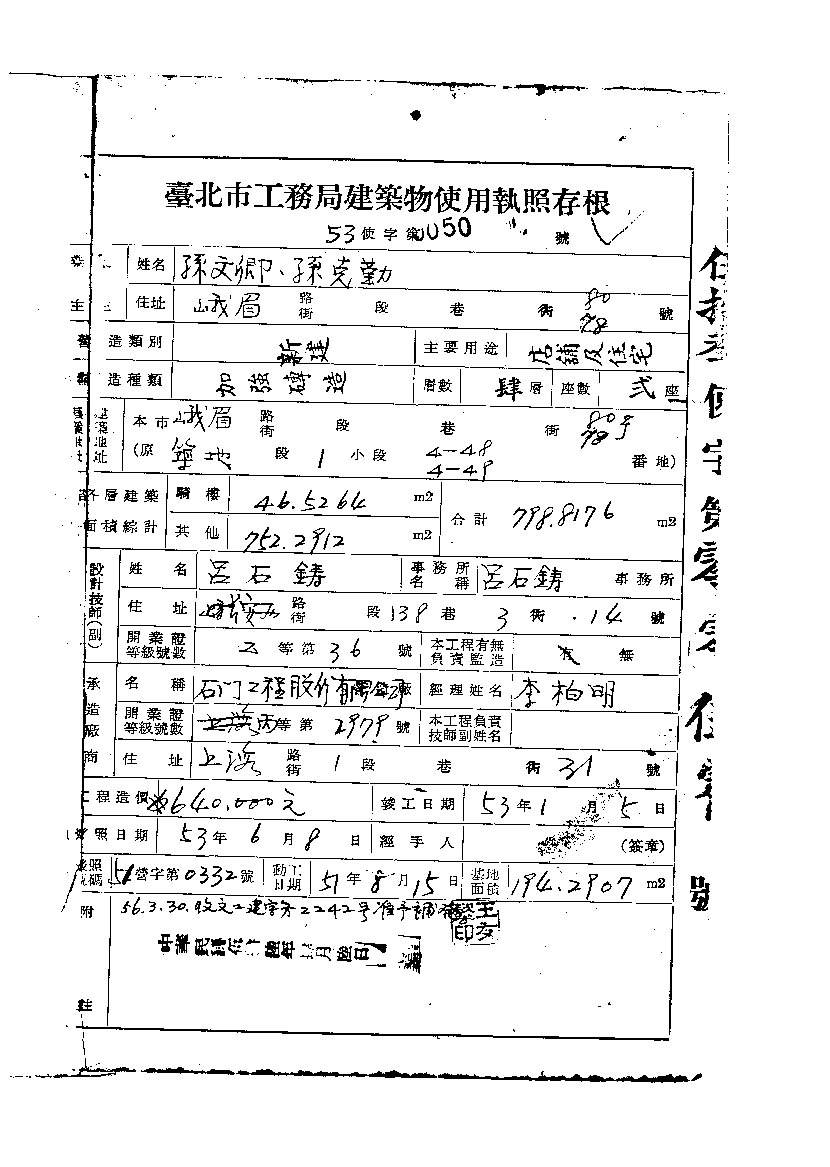 臺北市工務局建築物使用執照存根
53使字第0050號
姓名 孫文卿、孫克勤
主 住址 峨眉 路街 段 巷 街 80 78 號
造類別 新建 主要用途 店舖及住宅
造種類 加強磚造 層數 肆層 座數 弍座
本市峨眉 路街 段 巷 街 80 78号
(原 築地 段 1 小段 4-48 4-49 番地)
層建築 騎樓 46.5264 m2 合計 798.8176 m2
面積綜計 其他 752.2912 m2
設計技師(副) 姓名 呂石鋳 事務所名稱 呂石鋳 事務所
住址 路街 段 138 巷 3 街 14 號
開業證等級號數 乙等第36號 本工程有無負責監造 有 無
承造廠商 名稱 石门工程股份有限公司 經理姓名 李柏明
開業證等級號數 丙等第2979號 本工程負責技師副姓名
住址 上海 路街 1 段 巷 街 31 號
工程造價 640.000元 竣工日期 53年1月5日
照日期 53年6月8日 經手人 (簽章)
照號碼 51營字第0332號 動工日期 51年8月15日 基地面積 194.2907 m2
附註 56.3.30.收文工建字第2242号准予補